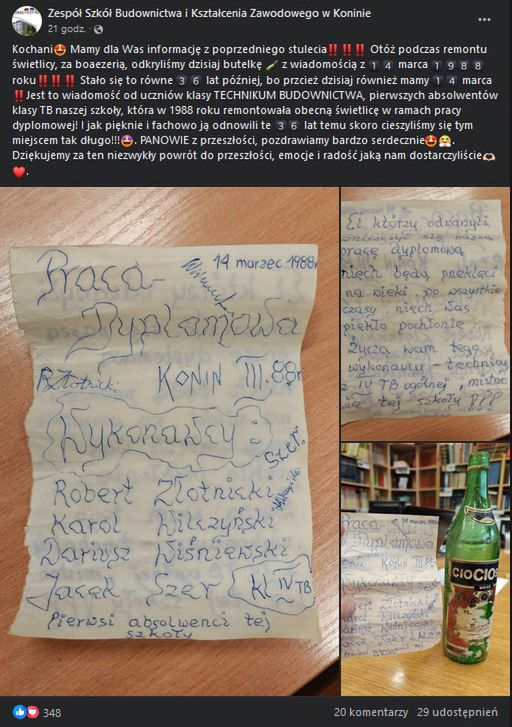 Zespół Szkół Budownictwa i Kształcenia Zawodowego w Koninie
21 godz. ·
Kochani🤩 Mamy dla Was informację z poprzedniego stulecia‼️‼️‼️ Otóż podczas remontu
świetlicy, za boaezerią, odkryliśmy dzisiaj butelkę 🍾 z wiadomością z 1 4 marca 1 9 8 8
roku‼️‼️‼️ Stało się to równe 3 6 lat później, bo przcież dzisiaj również mamy 1 4 marca
‼️Jest to wiadomość od uczniów klasy TECHNIKUM BUDOWNICTWA, pierwszych absolwentów
klasy TB naszej szkoły, która w 1988 roku remontowała obecną świetlicę w ramach pracy
dyplomowej! I jak pięknie i fachowo ją odnowili te 3 6 lat temu skoro cieszyliśmy się tym
miejscem tak długo!!!🤩. PANOWIE z przeszłości, pozdrawiamy bardzo serdecznie🤩😤.
Dziękujemy za ten niezwykły powrót do przeszłości, emocje i radość jaką nam dostarczyliście🫶🏻
❤️.
14 marzec 1988r
Praca
Dyplomowa
R.Złotnicki KONIN III.88r
Wykonawcy:
Szer
Robert Złotnicki
Karol Wilczyński
Dariusz Wiśniewski
Jacek Szer kl IV TB
Pierwsi absolwenci tej
szkoły
Ci którzy odważyli
się naszą
pracę dyplomową
niech będą przeklęci
na wieki, po wszystkie
czasy, niech was
piekło pochłonie
Życzą wam tego
wykonawcy - technicy
z IV TB ogólnej, mistrzo
wie tej szkoły PPP
14 marzec 1988r
Praca
Dyplomowa
KONIN III.88r
Wykonawcy
Robert Złotnicki
Karol Wilczyński
Dariusz Wiśniewski
Jacek Szer
CIOCIOS
348
20 komentarzy 29 udostępnień